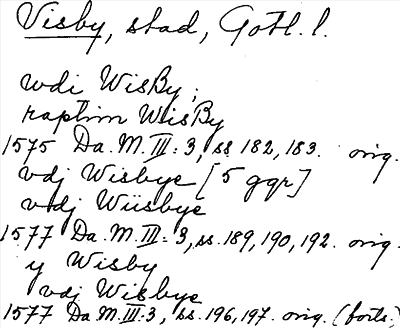 Visby, stad, Gotl. l.
udi WisBy;
raptim WiisBy
1575 Da.M.III:3, ss. 182, 183. orig.
vdj Wisbye [5 ggr]
vdj Wiisbye
1577 Da.M.III:3, ss. 189, 190, 192. orig.
y Wisby
vdj Wisbye
1577 Da.M.III:3, ss. 196, 197. orig. (forts.)